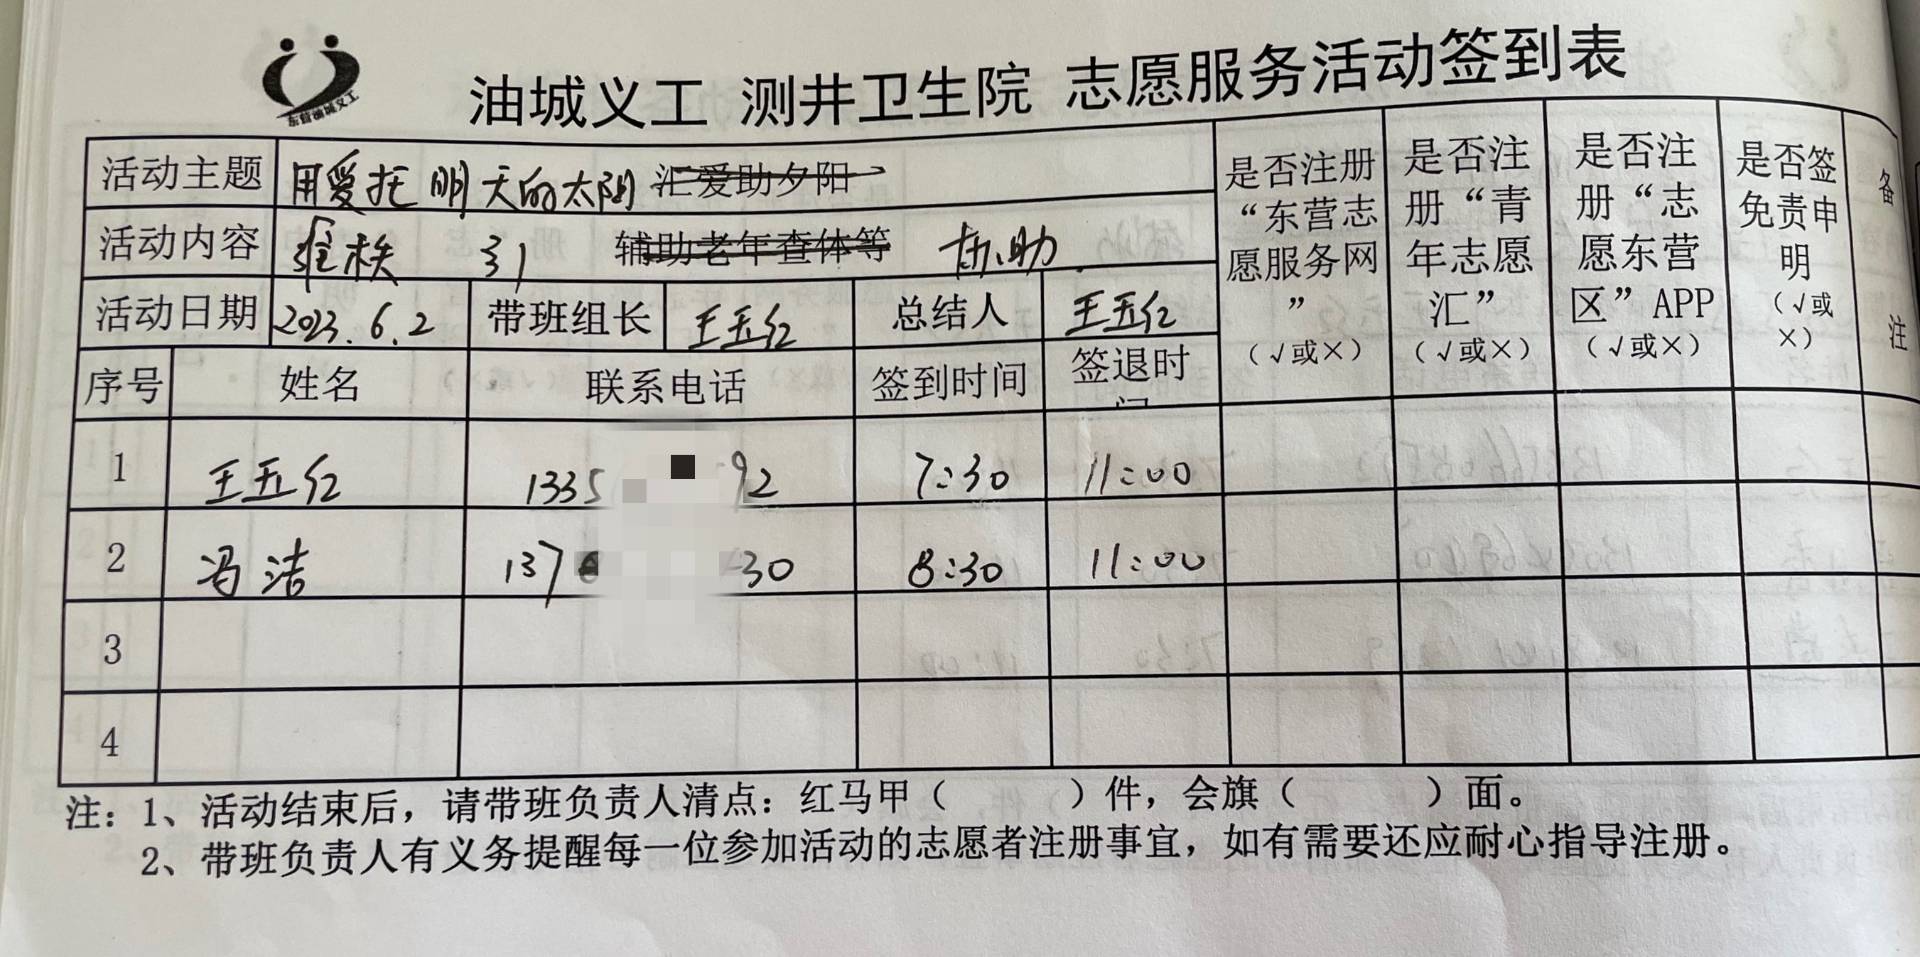 东营油城义工
油城义工 测井卫生院 志愿服务活动签到表
活动主题 用爱托明天的太阳 汇爱助夕阳
活动内容 维秩 引 辅助老年查体等 协助
活动日期 2023.6.2 带班组长 王五红 总结人 王五红
是否注册“东营志愿服务网”（√或×）
是否注册“青年志愿汇”（√或×）
是否注册“志愿东营区”APP（√或×）
是否签免责申明（√或×）
备注
序号 姓名 联系电话 签到时间 签退时
1 王五红 1335 92 7:30 11:00
2 冯洁 137 30 8:30 11:00
3
4
注：1、活动结束后，请带班负责人清点：红马甲（ ）件，会旗（ ）面。
2、带班负责人有义务提醒每一位参加活动的志愿者注册事宜，如有需要还应耐心指导注册。